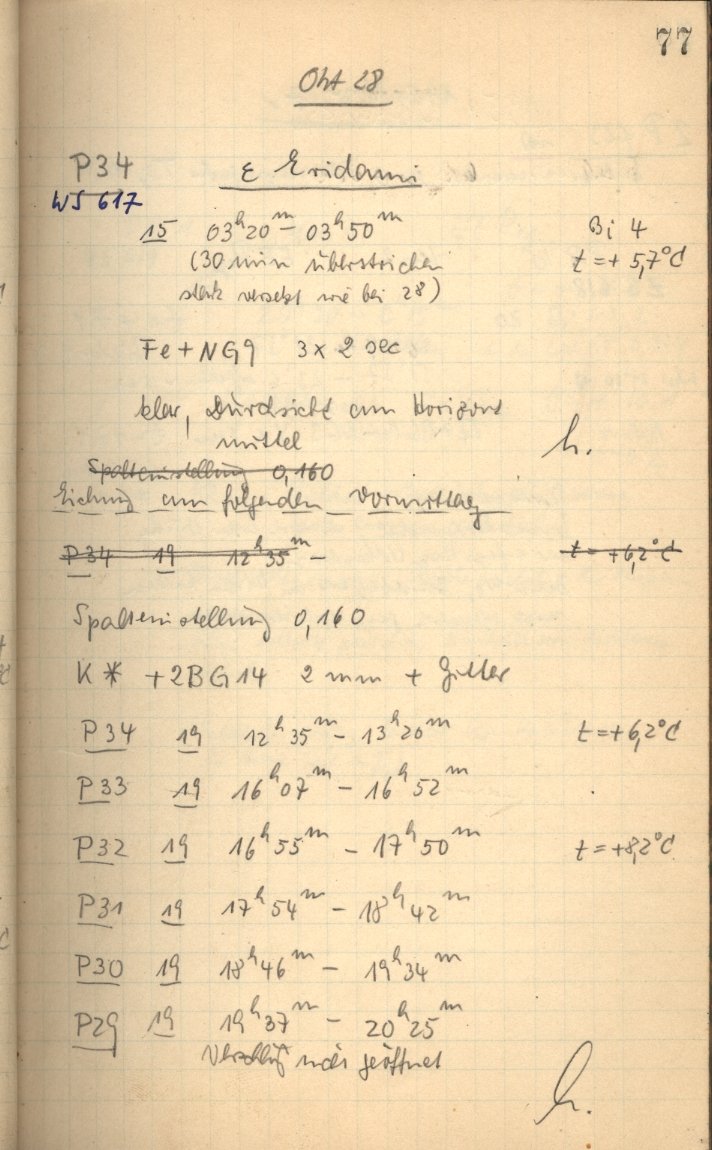 77
Okt 28
P34 ε Eridani
WS 617
15 03ʰ20ᵐ – 03ʰ50ᵐ Bi 4
(30 min überstrichen t = + 5,7°C
stark versetzt wie bei 28)
Fe + NG9 3 x 2 sec
klar, Durchsicht am Horizont
mittel h.
Spalteinstellung 0,160
Eichung am folgenden Vormittag
P34 19 12ʰ35ᵐ – t = +6,2°C
Spalteinstellung 0,160
K * + 2BG14 2 mm + Gitter
P34 19 12ʰ35ᵐ – 13ʰ20ᵐ t = +6,2°C
P33 19 16ʰ07ᵐ – 16ʰ52ᵐ
P32 19 16ʰ55ᵐ – 17ʰ50ᵐ t = +8,2°C
P31 19 17ʰ54ᵐ – 18ʰ42ᵐ
P30 19 18ʰ46ᵐ – 19ʰ34ᵐ
P29 19 19ʰ37ᵐ – 20ʰ25ᵐ
Verschluß geöffnet
h.